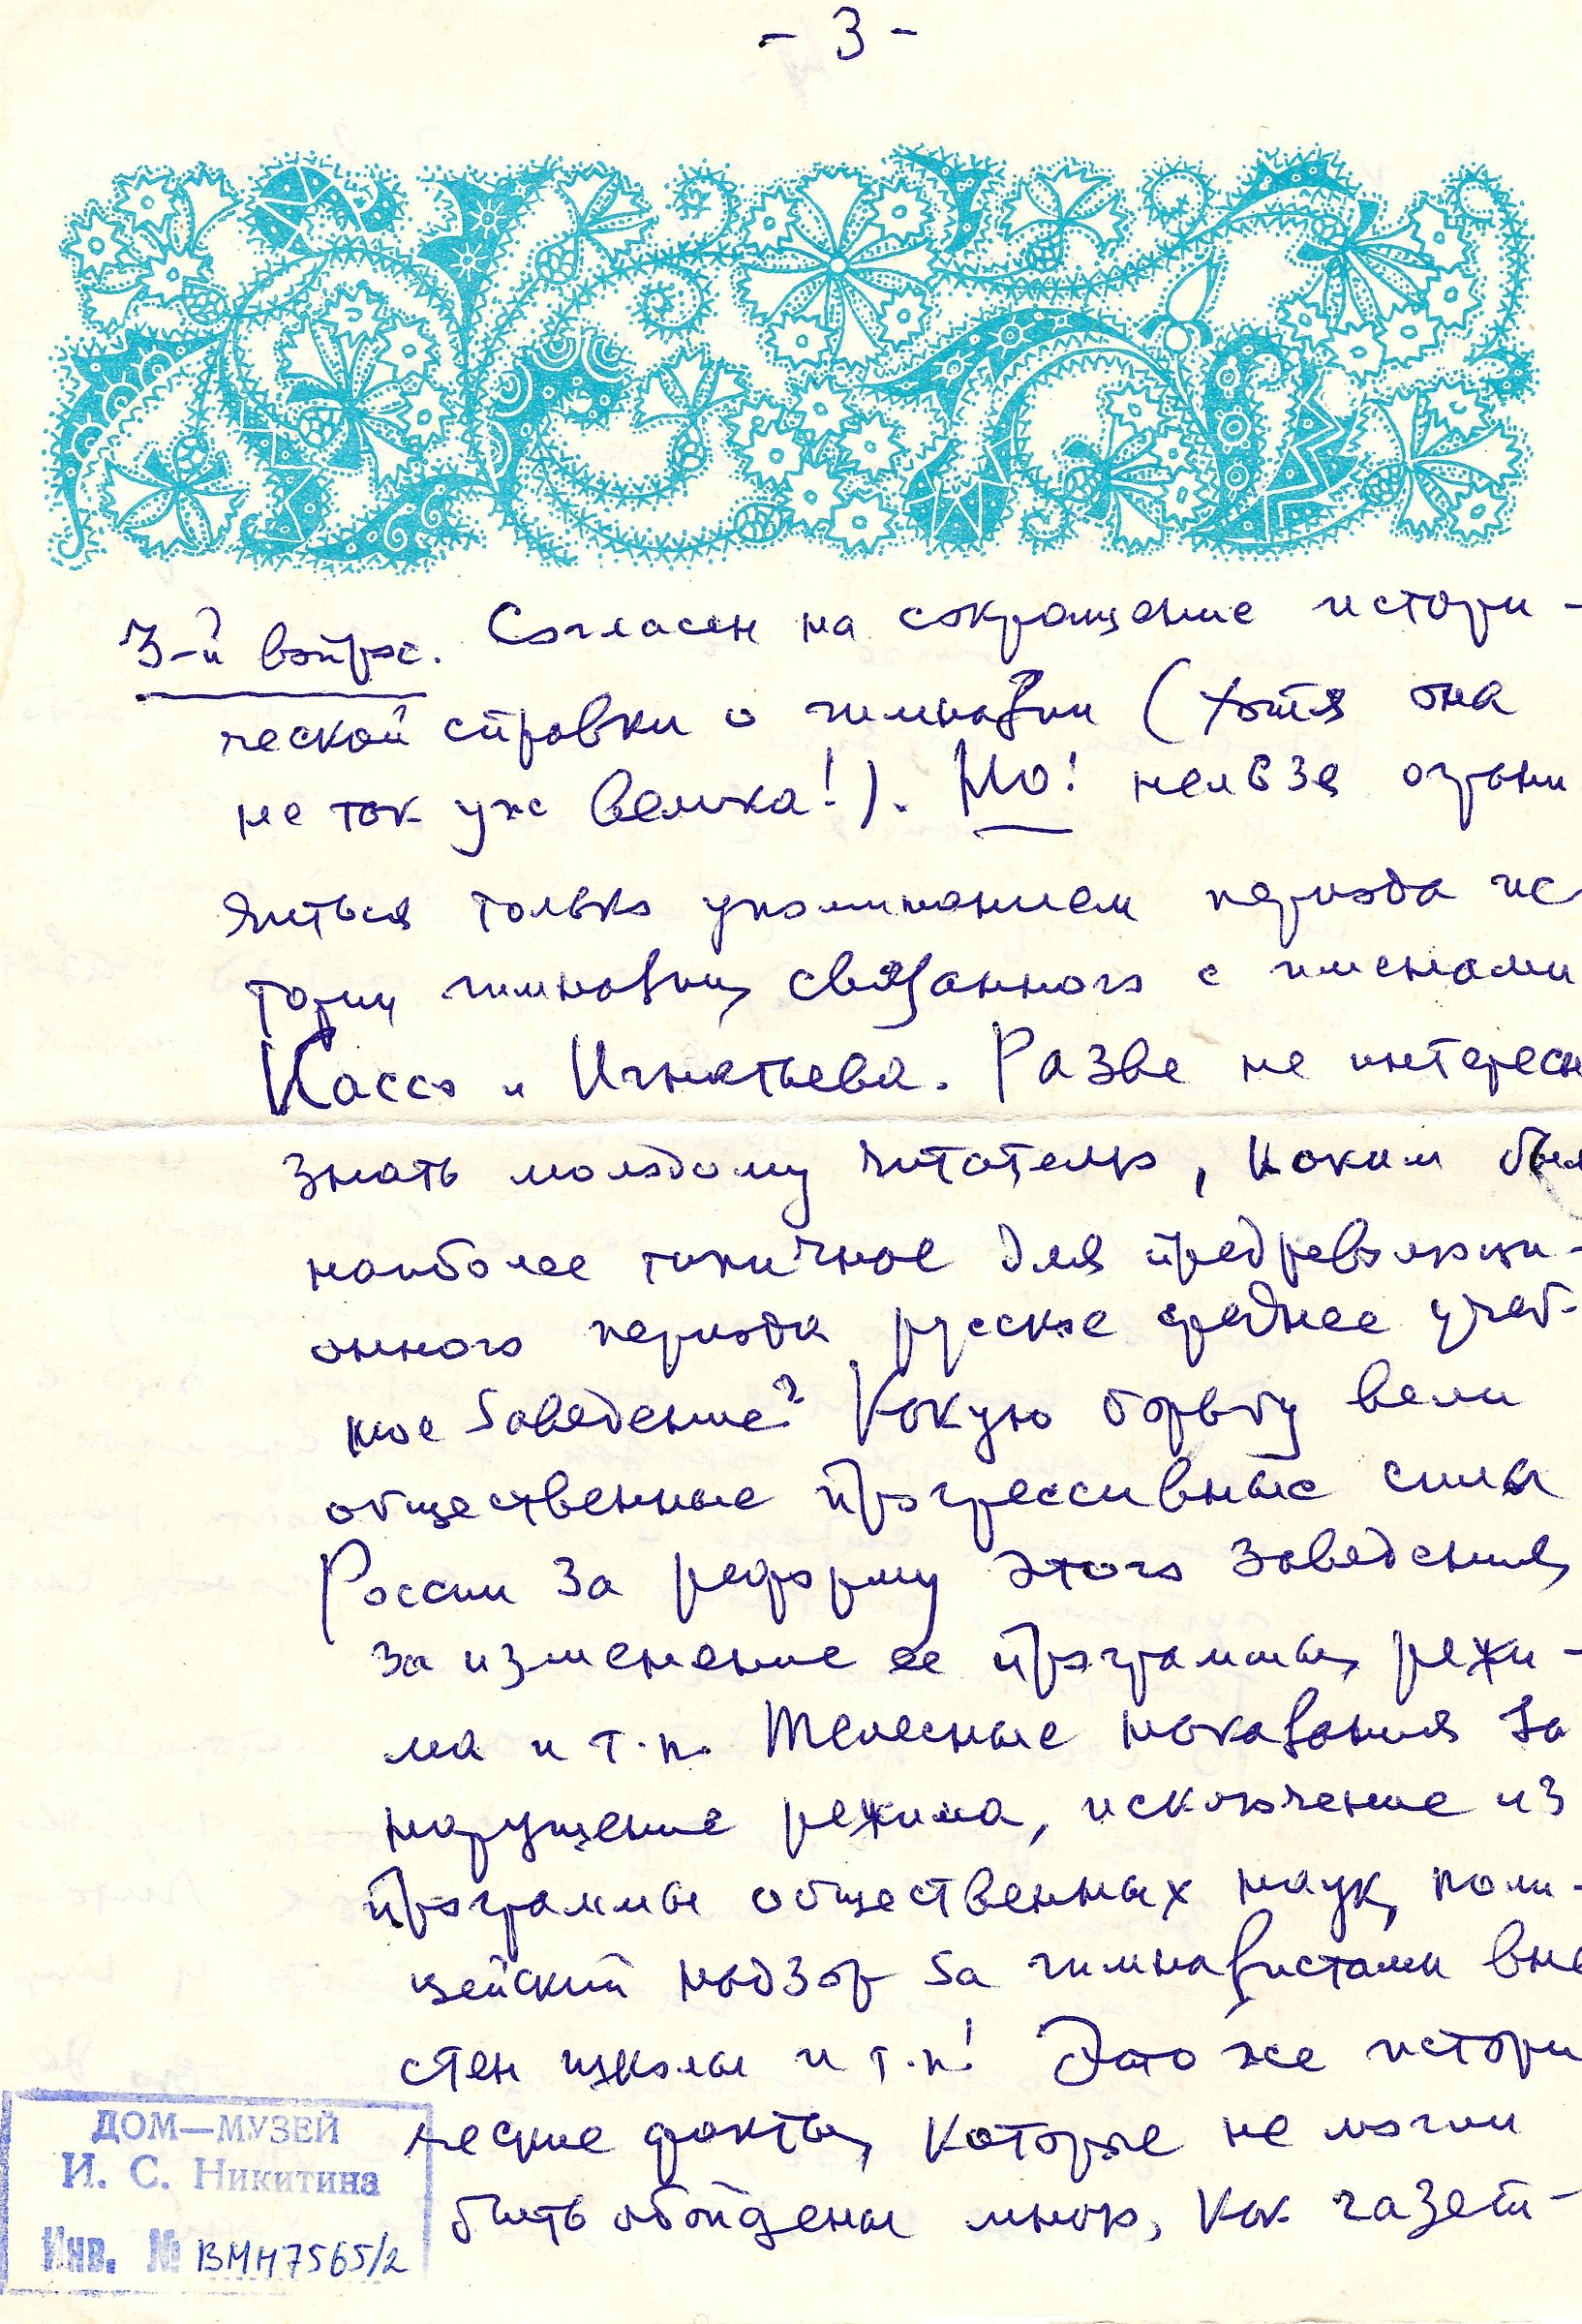 - 3 -
3-й вопрос. Согласен на сокращение истори-
ческой справки о гимназии (хотя она
не так уж велика!). Но! нельзя ограни
читься только упоминанием периода ис
тории гимназии, связанного с именами
Кассо и Игнатьева. Разве не интересн
знать молодому читателю, каким был
наиболее типичное для предреволюци-
онного периода русское среднее учеб-
ное заведение? Какую борьбу вели
общественные прогрессивные силы
России за реформу этого заведения,
за изменение ее программы, режи-
ма и т.п. Телесные наказания за
нарушение режима, исключение из
программы общественных наук, поли-
цейский надзор за гимназистами вне
стен школы и т.п! Это же истори
ческие факты, которые не могли
быть обойдены мною, как газет-
ДОМ—МУЗЕЙ
И. С. Никитина
Инв. № ВМН7565/2